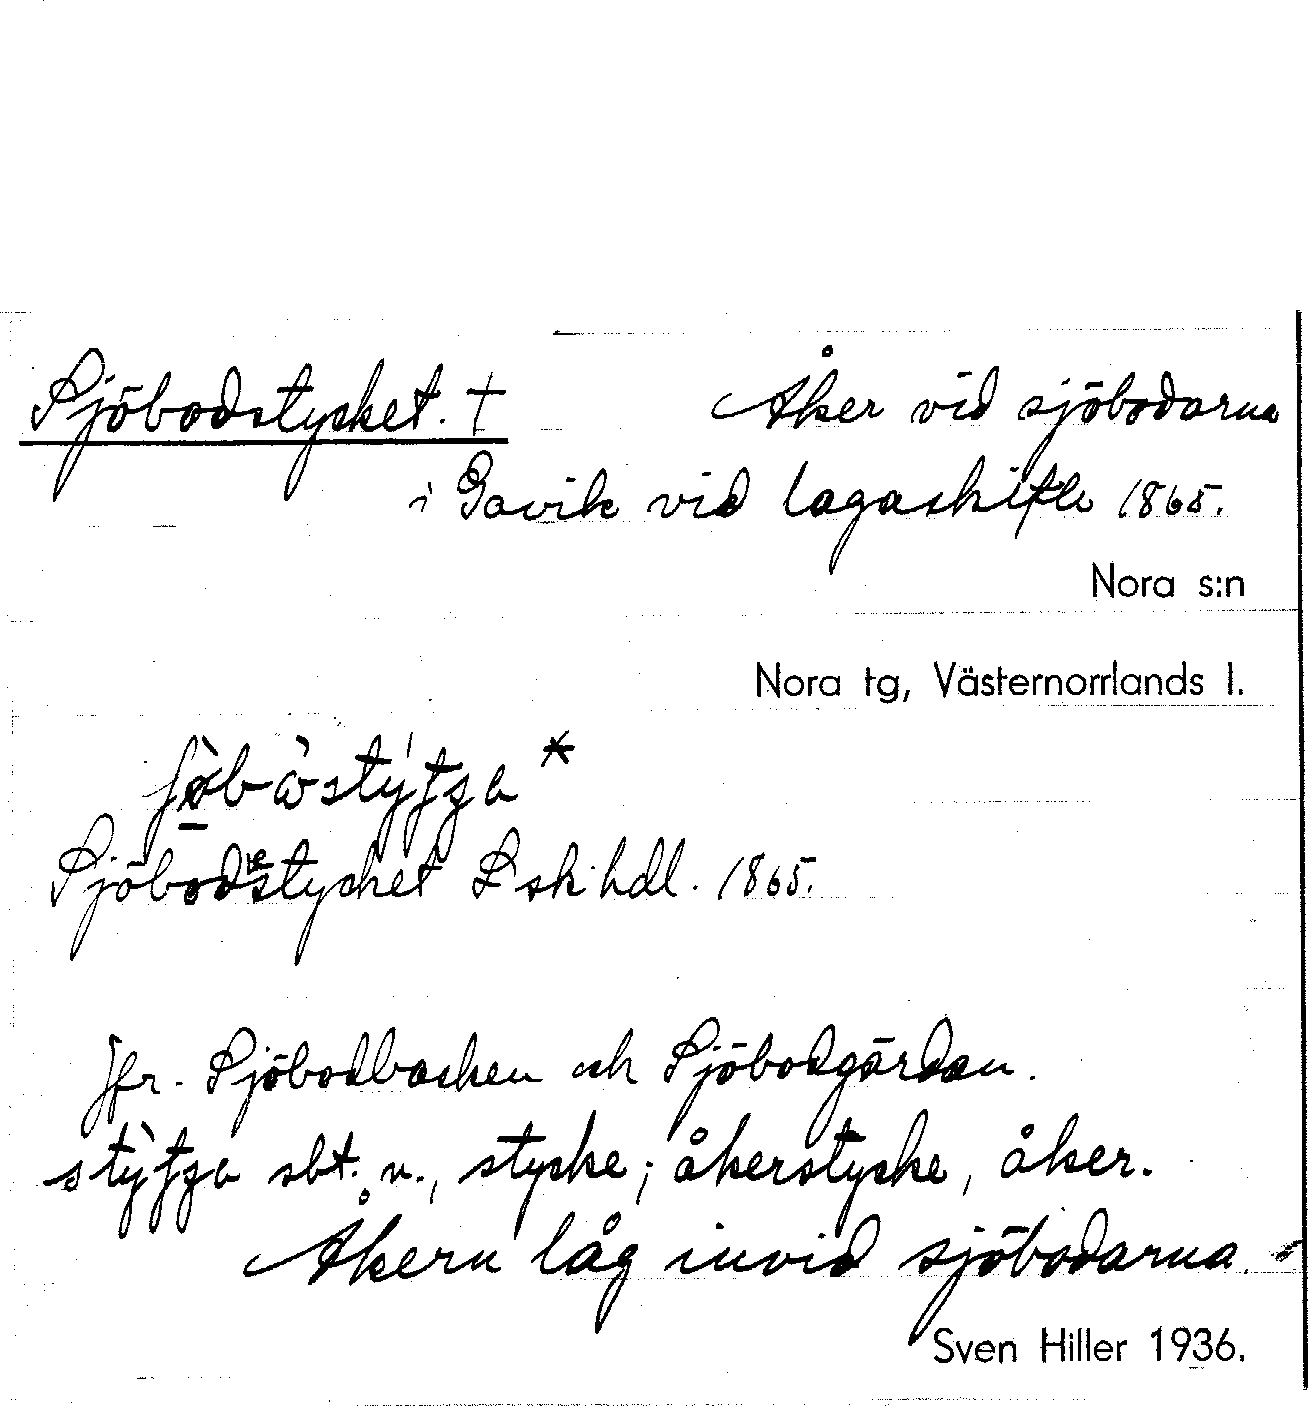 Sjöbodstycket. † Åker vid sjöbodarna
i Gavik vid lagaskifte 1865.
Nora s:n
Nora tg, Västernorrlands l.
Sjöbodestycket L sk hdl. 1865.
Jfr. Sjöbodbacken och Sjöbodgärdan.
sbt. n., stycke; åkerstycke, åker.
Åkern låg invid sjöbodarna.
Sven Hiller 1936.